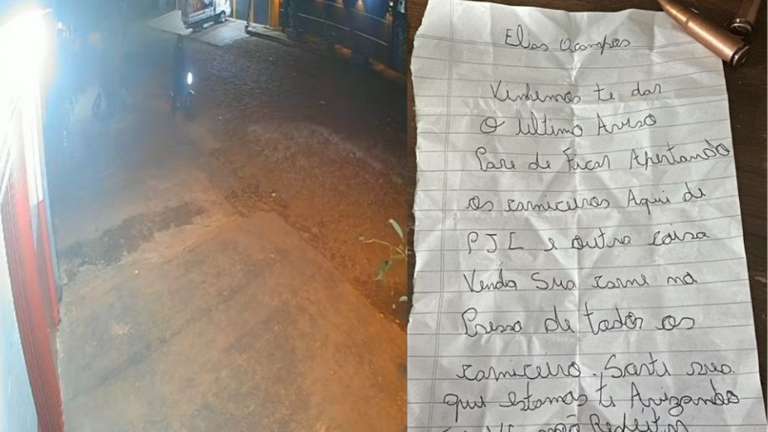 Elas Ocampos
Vinhemos te dar
O ultimo Aviso
Pare de Ficar Apertando
os carniceiros Aqui de
PJC e outra coisa
Venda Sua carne na
Presso de todos os
carniceiro. Sorti sua
que estamos te Avizando
não